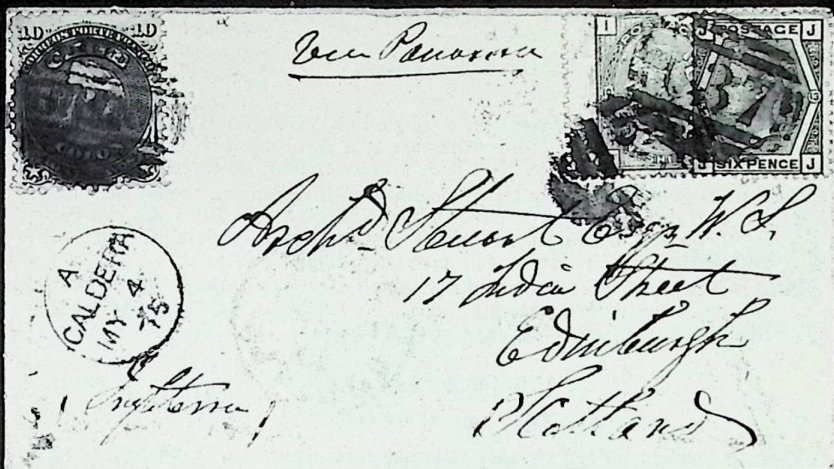 10 10
CORREOS PORTE FRANCO
via Panama
I
J POSTAGE J
J SIX PENCE J
Archd. Stuart Esqr. W. S.
17 India Street
Edinburgh
Scotland
A
CALDERA
MY 4
75
Inglaterra